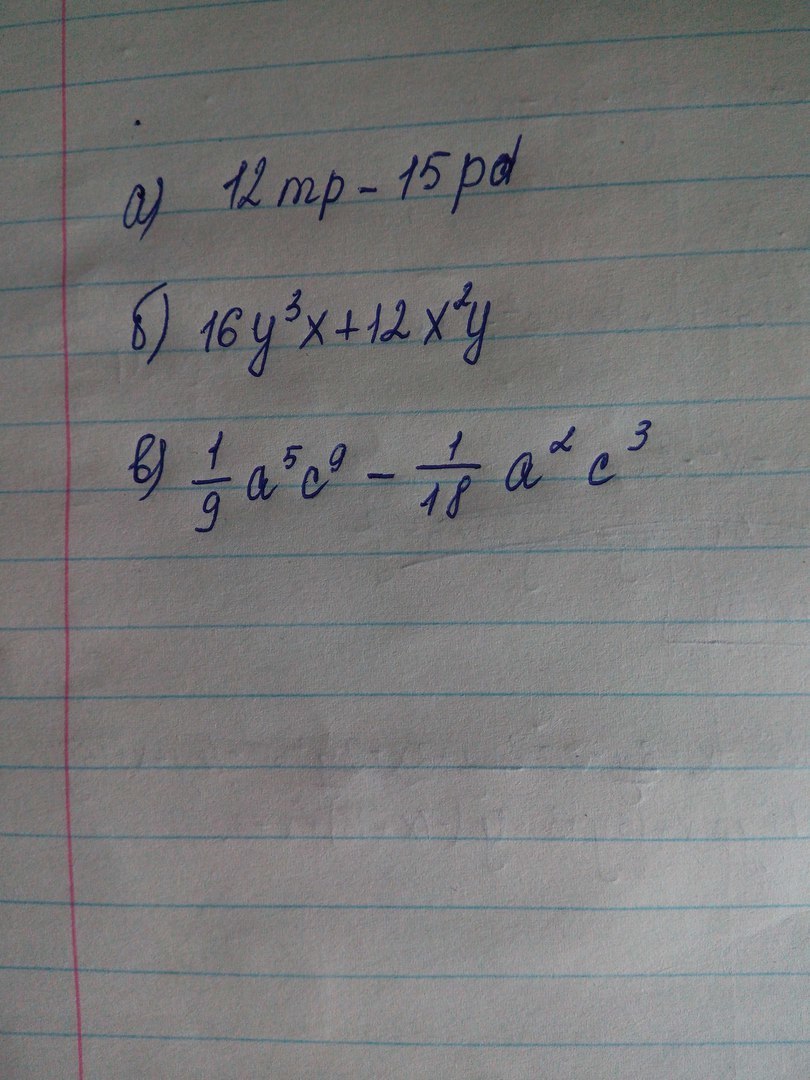 а) 12mp - 15pd
б) 16y³x + 12x²y
в) 1/9 a⁵c⁹ - 1/18 a² c³